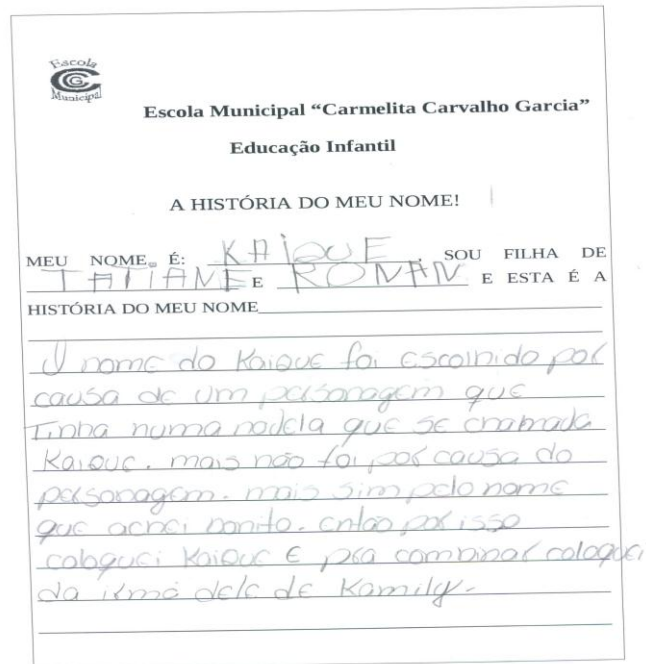 Escola
CCG
Municipal
Escola Municipal “Carmelita Carvalho Garcia”
Educação Infantil
A HISTÓRIA DO MEU NOME!
MEU NOME É: KAIQUE, SOU FILHA DE
TATIANE E RONAN E ESTA É A
HISTÓRIA DO MEU NOME
O nome do Kaique foi escolhido por
causa de um personagem que
Tinha numa novela que se chamada
Kaique. mais não foi por causa do
personagem. mais sim pelo nome
que achei bonito. então por isso
coloquei Kaique E pra combinar coloquei
da irmã dele de Kamily.